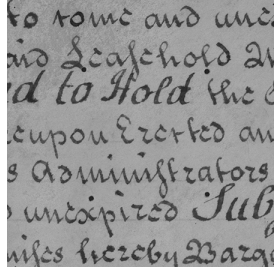 to come and une
aid Leasehold M
ed to Hold the
eupon Erected an
s Administrators
unexpired Sub
mises hereby Barg